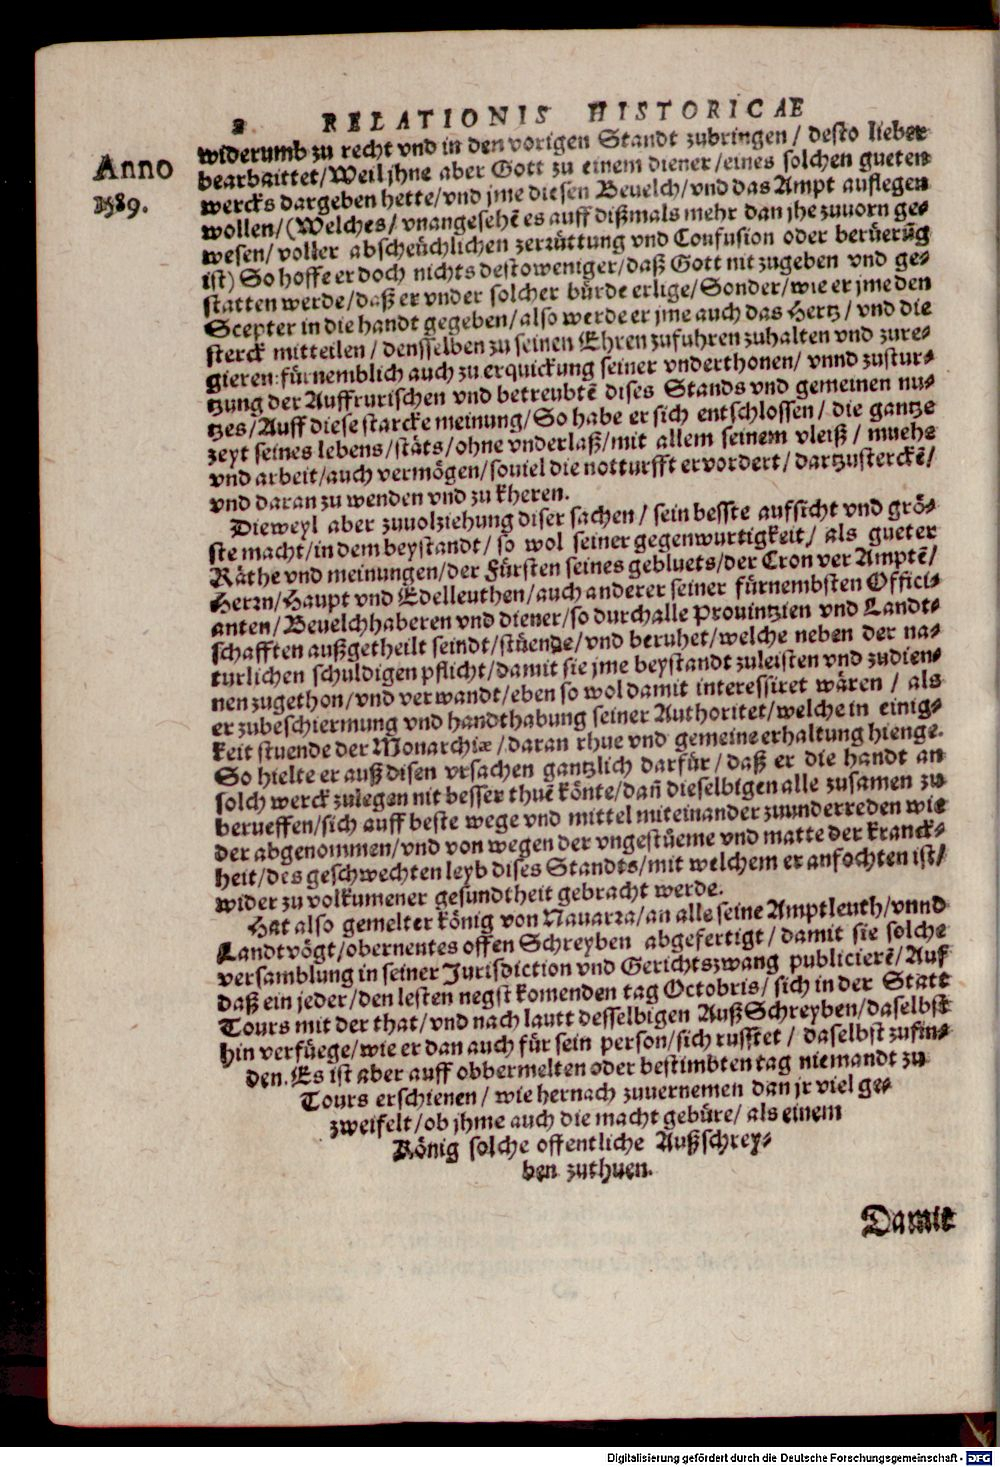 2 RELATIONIS HISTORICAE
Anno
1589.
widerumb zu recht vnd in den vorigen Standt zubringen / desto lieber
bearbaittet/Weil jhne aber Gott zu einem diener/eines solchen gueten
wercks dargeben hette/vnd jme diesen Beuelch/vnd das Ampt auflegen
wollen/(Welches/vnangesehẽ es auff dißmals mehr dan jhe zuuorn ge-
wesen/voller abscheüchlichen zerrüttung vnd Confusion oder berüerũg
ist) So hoffe er doch nichts destoweniger/daß Gott nit zugeben vnd ge-
statten werde/daß er vnder solcher bürde erlige/Sonder/wie er jme den
Scepter in die handt gegeben/also werde er jme auch das Hertz/vnd die
sterck mitteilen/densselben zu seinen Ehren zufuhren zuhalten vnd zure-
gieren:fürnemblich auch zu erquickung seiner vnderthonen/vnnd zustur-
tzung der Auffrurischen vnd betreubtẽ dises Stands vnd gemeinen nu-
tzes/Auff diese starcke meinung/So habe er sich entschlossen/die gantze
zeyt seines lebens/stäts/ohne vnderlaß/mit allem seinem vleiß/muehe
vnd arbeit/auch vermögen/souiel die notturfft ervordert/dartzusterckẽ/
vnd daran zu wenden vnd zu kheren.
Dieweyl aber zuuolziehung diser sachen/sein besste aufsicht vnd grö-
ste macht/in dem beystandt/so wol seiner gegenwurtigkeit/als gueter
Räthe vnd meinungen/der Fürsten seines gebluets/der Cron ver Amptẽ/
Herrn/Haupt vnd Edelleuthen/auch anderer seiner fürnembsten Offici-
anten/Beuelchhaberen vnd diener/so durch alle Prouintzien vnd Landt-
schafften außgetheilt seindt/stüende/vnd beruhet/welche neben der na-
turlichen schuldigen pflicht/damit sie jme beystandt zuleisten vnd zudien-
nen zugethon/vnd verwandt/eben so wol damit interessiret wären/als
er zubeschiermung vnd handthabung seiner Authoritet/welche in einig-
keit stuende der Monarchiæ/daran rhue vnd gemeine erhaltung hienge.
So hielte er auß disen vrsachen gantzlich darfür/daß er die handt an
solch werck zulegen nit besser thuẽ könte/dañ dieselbigen alle zusamen zu
berueffen/sich auff beste wege vnd mittel miteinander zuunderreden wie
der abgenommen/vnd von wegen der vngestüeme vnd matte der kranck-
heit/des geschwechten leyb dises Standts/mit welchem er anfochten ist/
wider zu volkumener gesundtheit gebracht werde.
Hat also gemelter könig von Nauarra/an alle seine Amptleuth/vnnd
Landtvögt/obernentes offen Schreyben abgefertigt/damit sie solche
versamblung in seiner Jurisdiction vnd Gerichtszwang publicierẽ/Auf
daß ein jeder/den lesten negst komenden tag Octobris/sich in der Statt
Tours mit der that/vnd nach lautt desselbigen Auß Schreyben/daselbst
hin verfüege/wie er dan auch für sein person/sich russtet/daselbst zufin-
den. Es ist aber auff obbermelten oder bestimbten tag niemandt zu
Tours erschienen/wie hernach zuuernemen dan jr viel ge-
zweifelt/ob jhme auch die macht gebüre/als einem
König solche offentliche Außschrey-
ben zuthuen.
Damit
Digitalisierung gefördert durch die Deutsche Forschungsgemeinschaft - DFG